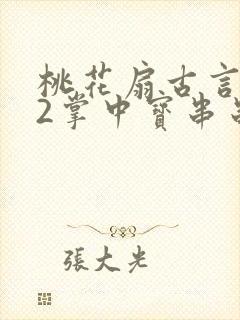 桃花扇古言
2掌中寶串
張大光